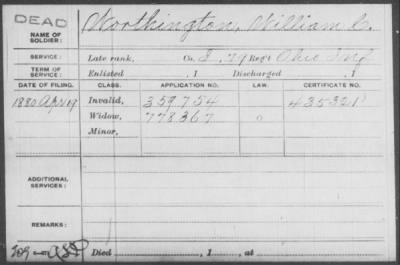 DEAD
NAME OF SOLDIER: Worthington, William
SERVICE: Late rank, Co. I, 79 Reg't Ohio Inf
TERM OF SERVICE: Enlisted , 1 Discharged , 1
DATE OF FILING. CLASS. APPLICATION NO. LAW. CERTIFICATE NO.
1880 Apr 19 Invalid, 359754 435321
Widow, 778367
Minor,
ADDITIONAL SERVICES:
REMARKS:
Died , 1 , at